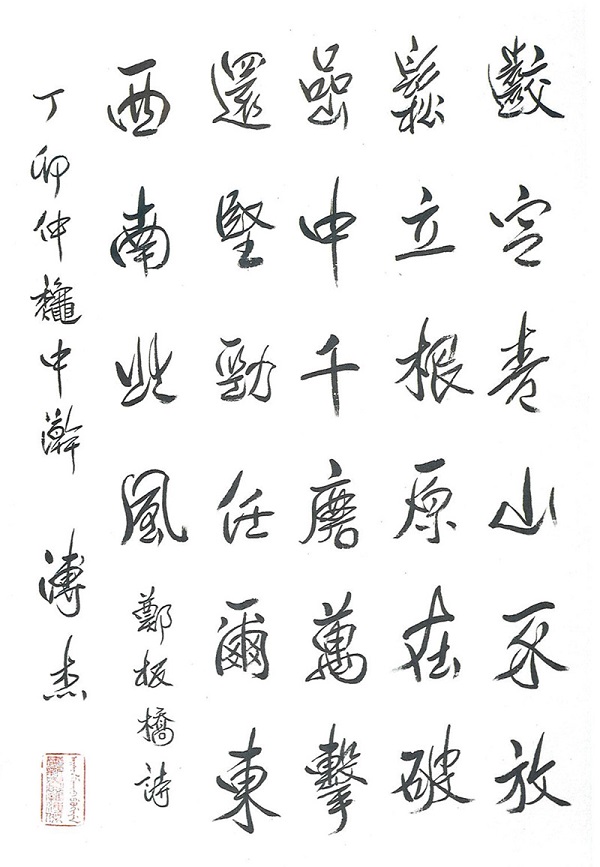 齩定青山不放
鬆立根原在破
嵒中千磨萬擊
還堅勁任爾東
西南北風 鄭板橋詩
丁卯仲龝中澣 溥杰